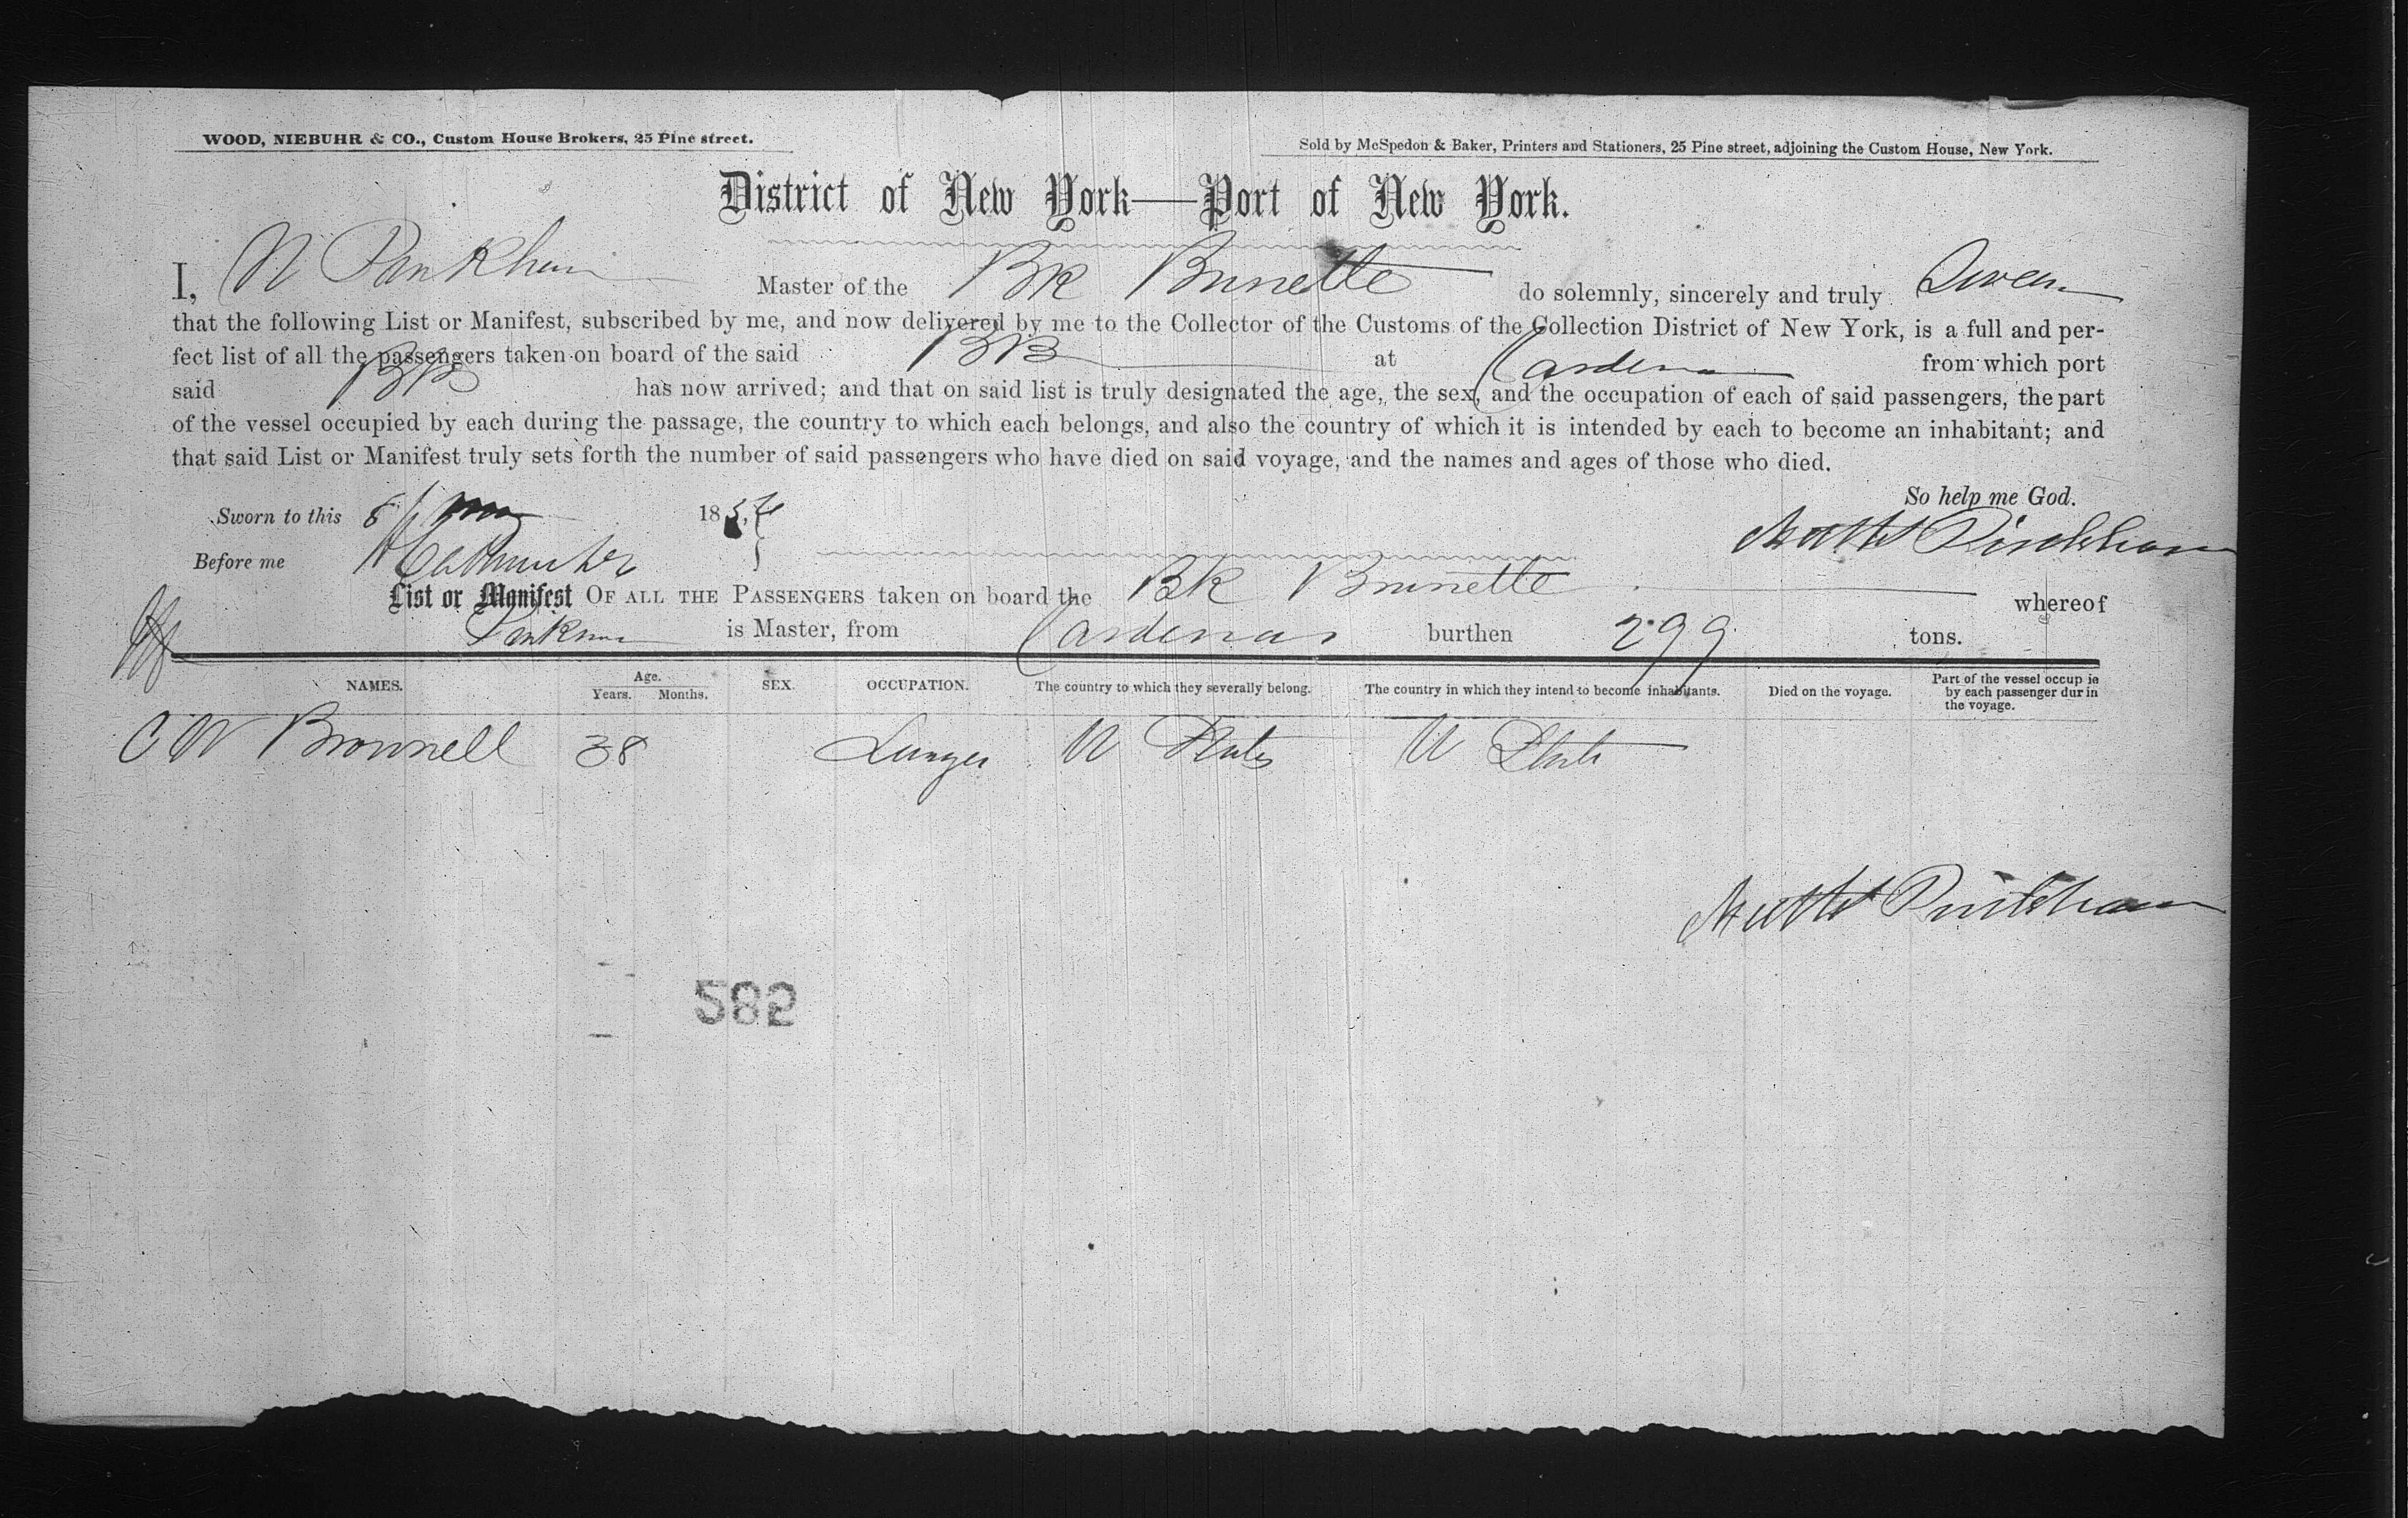 WOOD, NIEBUHR & CO., Custom House Brokers, 25 Pine street.
Sold by McSpedon & Baker, Printers and Stationers, 25 Pine street, adjoining the Custom House, New York.
District of New York—Port of New York.
I, N Master of the Bk Brunette do solemnly, sincerely and truly Swear
that the following List or Manifest, subscribed by me, and now delivered by me to the Collector of the Customs of the Collection District of New York, is a full and per-
fect list of all the passengers taken on board of the said Bk at Cardenas from which port
said Bk has now arrived; and that on said list is truly designated the age, the sex, and the occupation of each of said passengers, the part
of the vessel occupied by each during the passage, the country to which each belongs, and also the country of which it is intended by each to become an inhabitant; and
that said List or Manifest truly sets forth the number of said passengers who have died on said voyage, and the names and ages of those who died.
So help me God.
Sworn to this 8 185
Before me
List or Manifest OF ALL THE PASSENGERS taken on board the Bk Brunette whereof
is Master, from Cardenas burthen 299 tons.
NAMES. Age. Years. Months. SEX. OCCUPATION. The country to which they severally belong. The country in which they intend to become inhabitants. Died on the voyage. Part of the vessel occup ie by each passenger dur in the voyage.
C W Brownell 38 U States U States
582